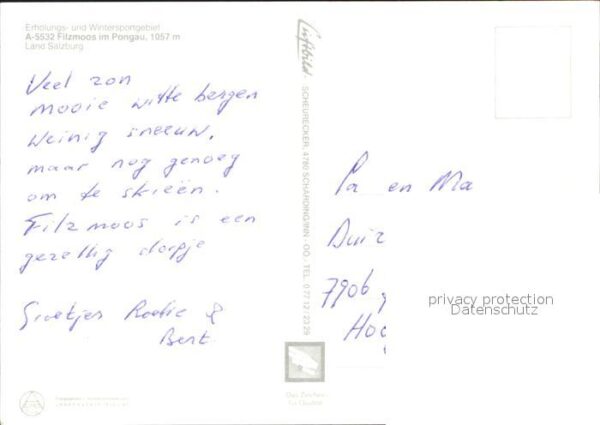 Erholungs- und Wintersportgebiet
A-5532 Filzmoos im Pongau, 1057 m
Land Salzburg
Veel zon
mooie witte bergen
weinig sneeuw,
maar nog genoeg
om te skieën.
Filzmoos is een
gezellig dorpje
Groetjes &
Bert
Luftbild
SCHEURECKER, 4780 SCHÄRDING/INN - OÖ. - TEL. 07712/2329
Pa en Ma
Duiz
7906
Hoo
privacy protection
Datenschutz
Das Zeichen
für Qualität